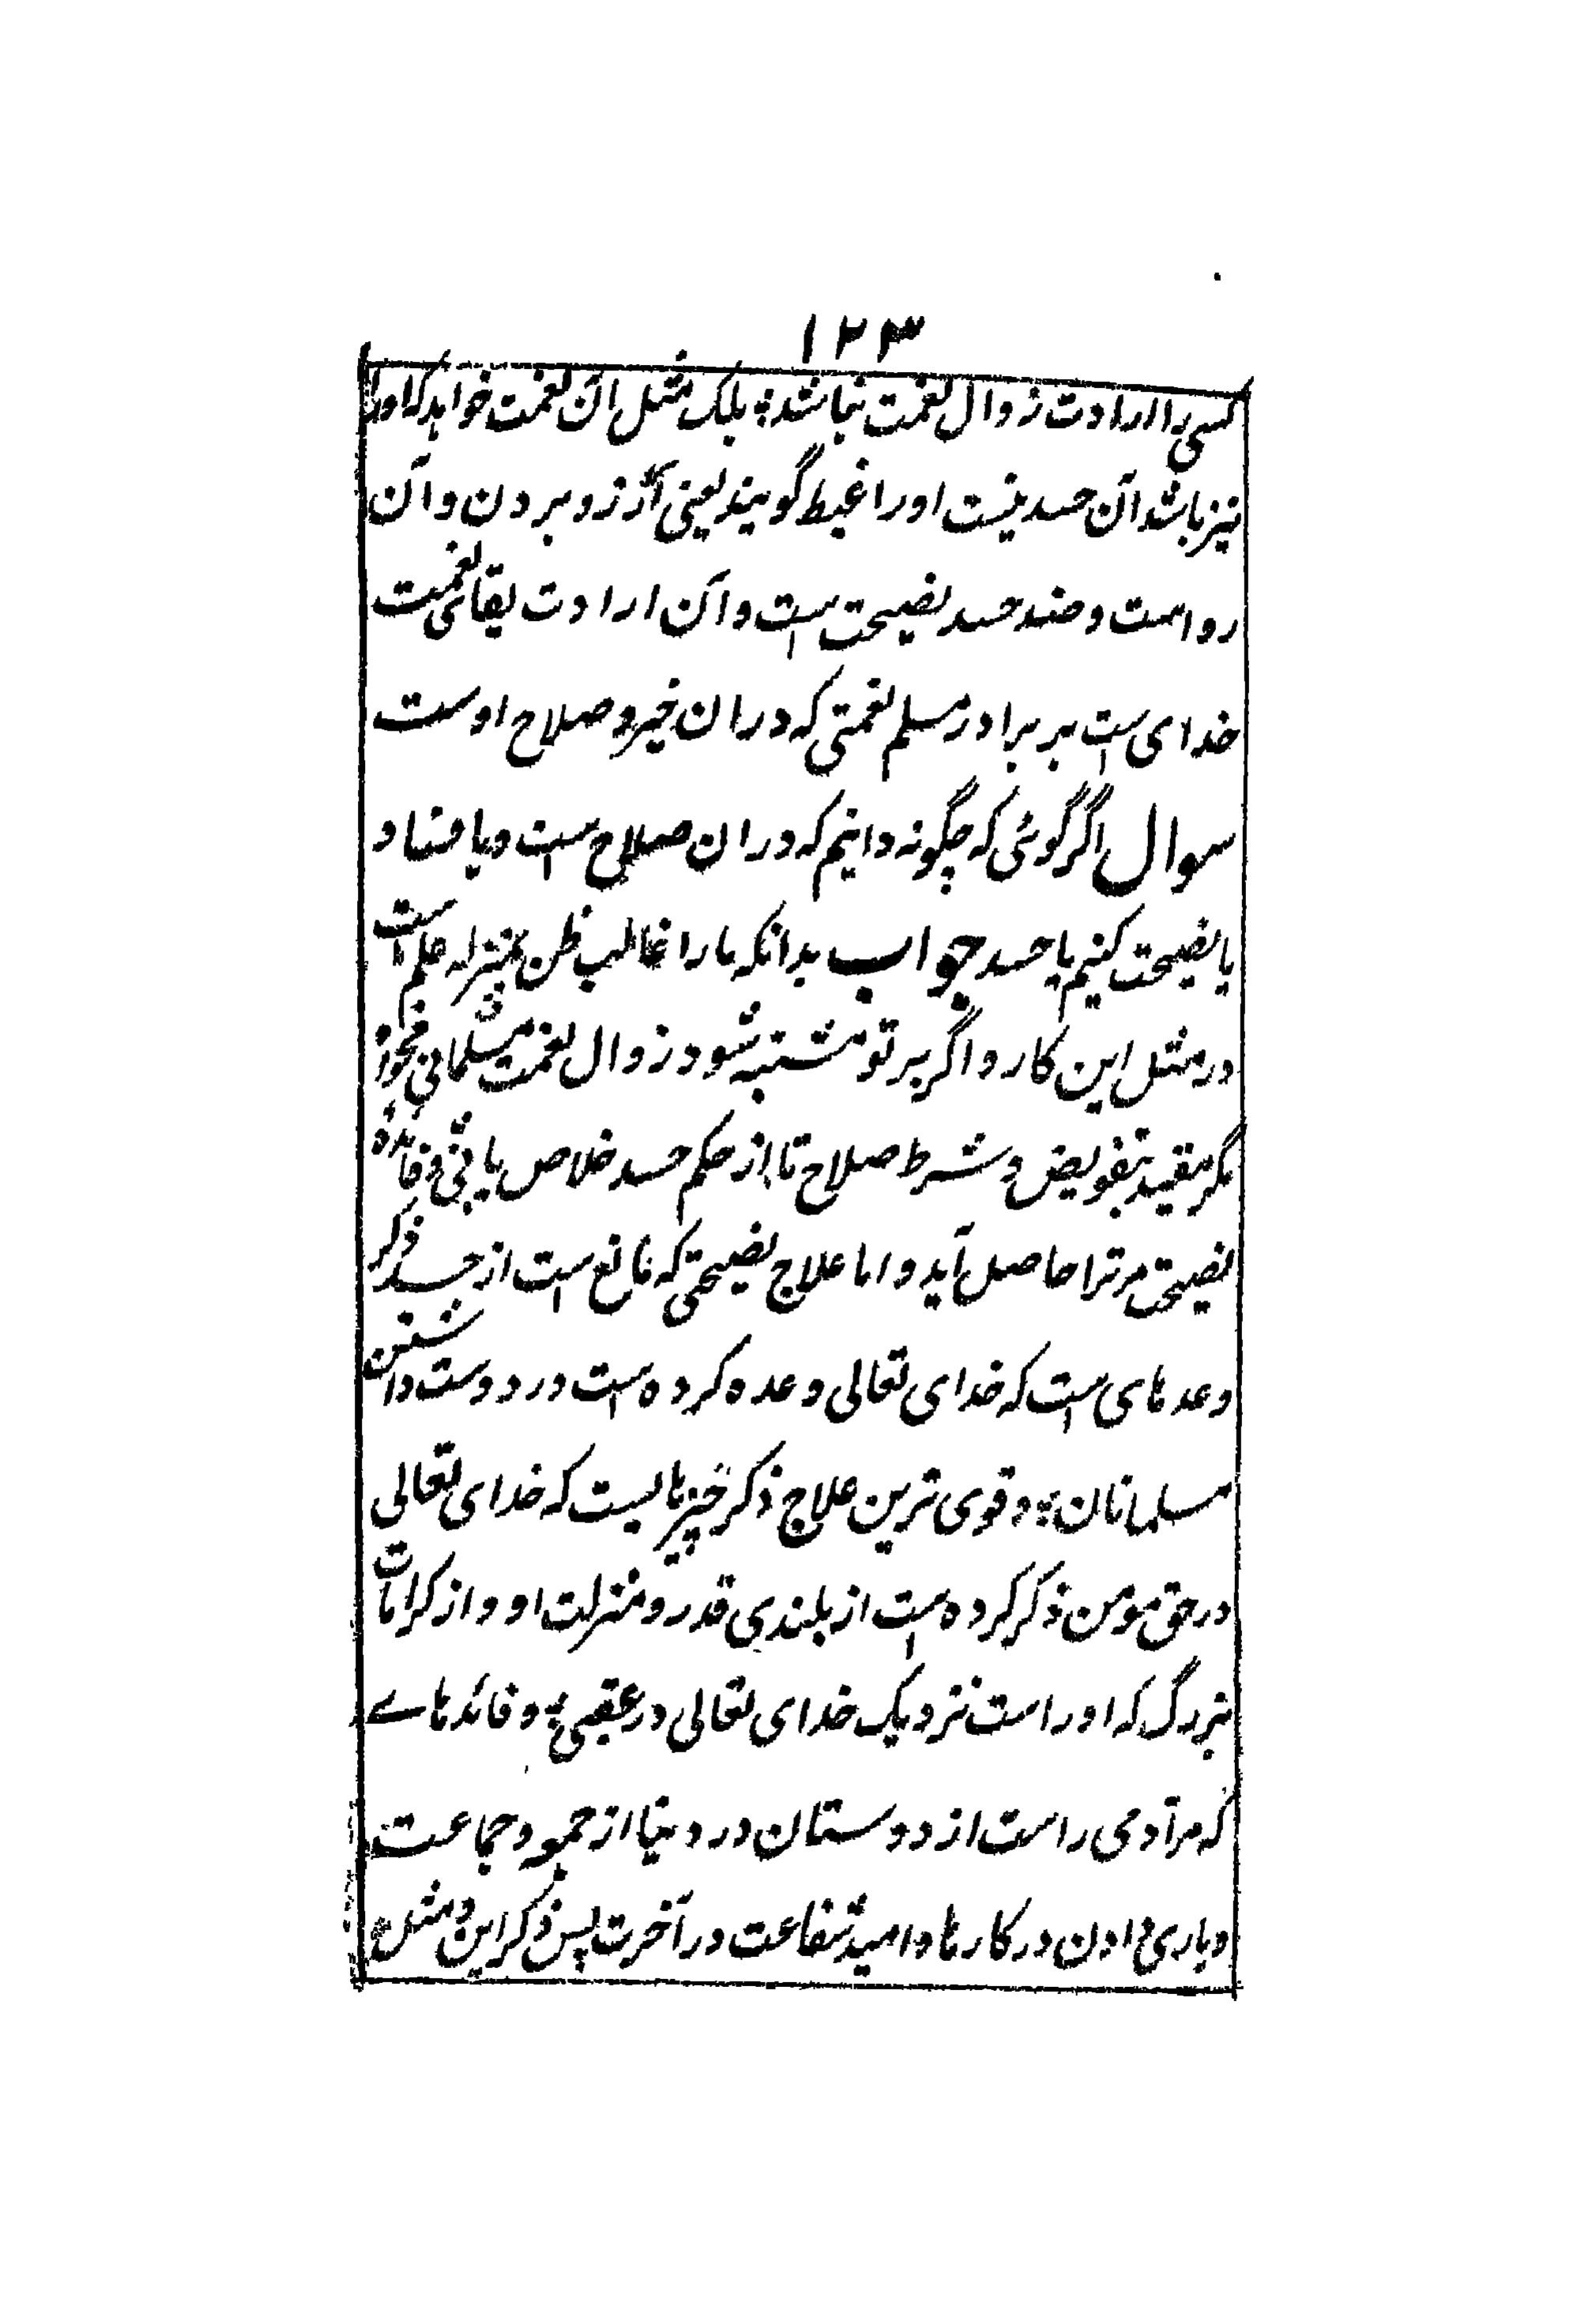 ۱۲۳
کسی را ارادت زوال نعمت نباشد؛ بلک مثل آن نعمت خواهد که اورا
نیز باشد آن حسد نیست اورا غبطه گویند یعنی آرزو بردن و آن
رواست و ضد حسد نصیحت است و آن ارادت بقای نعمت
خدای است بر برادر مسلم نعمتی که دران خیر و صلاح اوست
سوال اگر گوئی که چگونه دانیم که دران صلاح است و یا فساد
یا نصیحت کنیم یا حسد جواب بدانکه مارا غالب ظن بمنزله علم است
در مثل این کار و اگر بر تو مشتبه شود زوال نعمت مسلمانی مخواه
مگر مقید بتفویض و شرط صلاح تا از حکم حسد خلاص یابی و فائده
نصیحت مر ترا حاصل آید و اما علاج نصیحتی که مانع است از حسد ذکر
وعدهای است که خدای تعالی وعده کرده است در دوست داشتن
مسلمانان؛ و قوی ترین علاج ذکر چیزهایست که خدای تعالی
در حق مومن ذکر کرده است از بلندی قدر و منزلت او و از کرامات
بزرگ که اوراست نزدیک خدای تعالی در عقبی؛ و فائدهاے
که مر آدمی راست از دوستان در دنیا از جمعه و جماعت
و یاری دادن در کارها و امید شفاعت در آخرت پس ذکر این و مثل